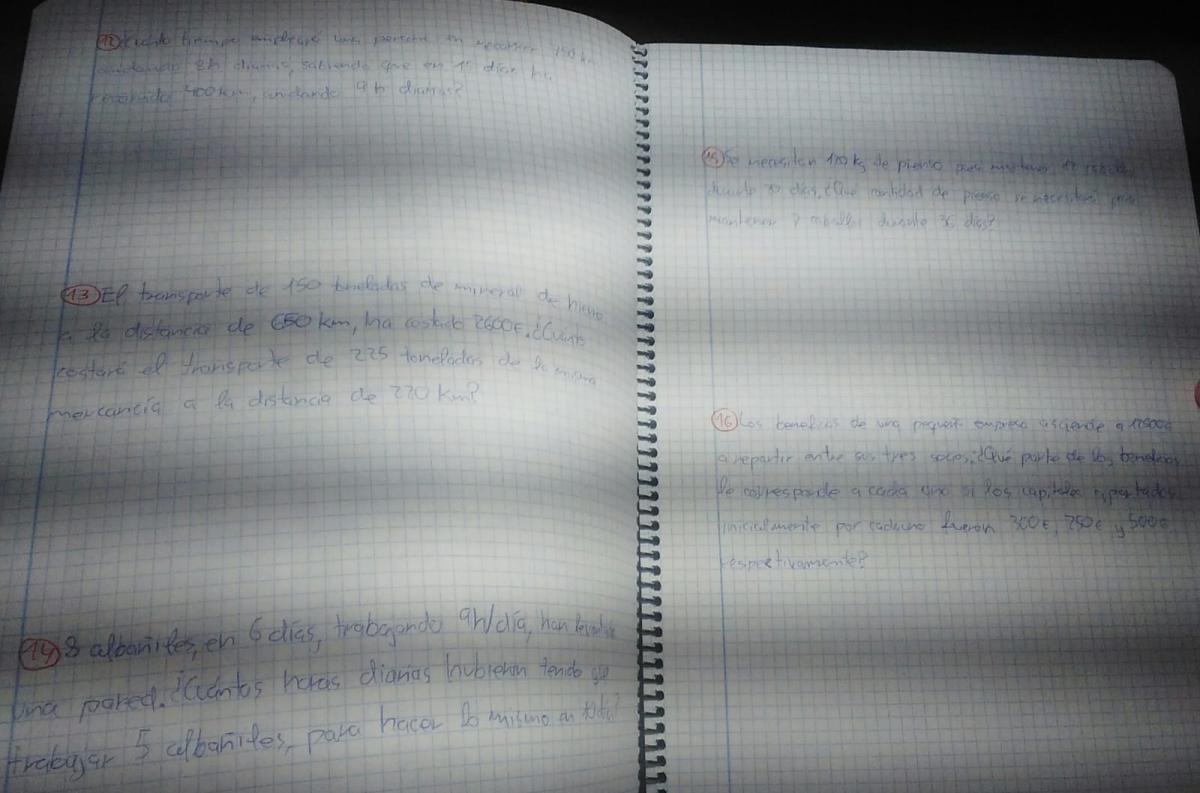 12 tiempo empleará una persona en recorrer 750 km
andando 8h diarias, sabiendo que en 15 días ha
recorrido 400 km, andando 9 h diarias?
13 El transporte de 150 toneladas de mineral de hierro
a la distancia de 650 km, ha costado 2600€. ¿Cuánto
costará el transporte de 225 toneladas de la misma
mercancía a la distancia de 220 km?
14 8 albañiles, en 6 días, trabajando 9h/día, han levantado
una pared. ¿Cuántas horas diarias hubieran tenido que
trabajar 5 albañiles, para hacer lo mismo en
15 Se necesitan 120 kg de pienso para mantener 12 caballos
durante 10 días. ¿Qué cantidad de pienso se necesitará para
mantener 7 caballos durante 36 días?
16 Los beneficios de una pequeña empresa asciende a
a repartir entre sus tres socios. ¿Qué parte de los beneficios
le corresponde a cada uno si los capitales aportados
inicialmente por cada uno fueron 300€, 250€ y 500€
respectivamente?